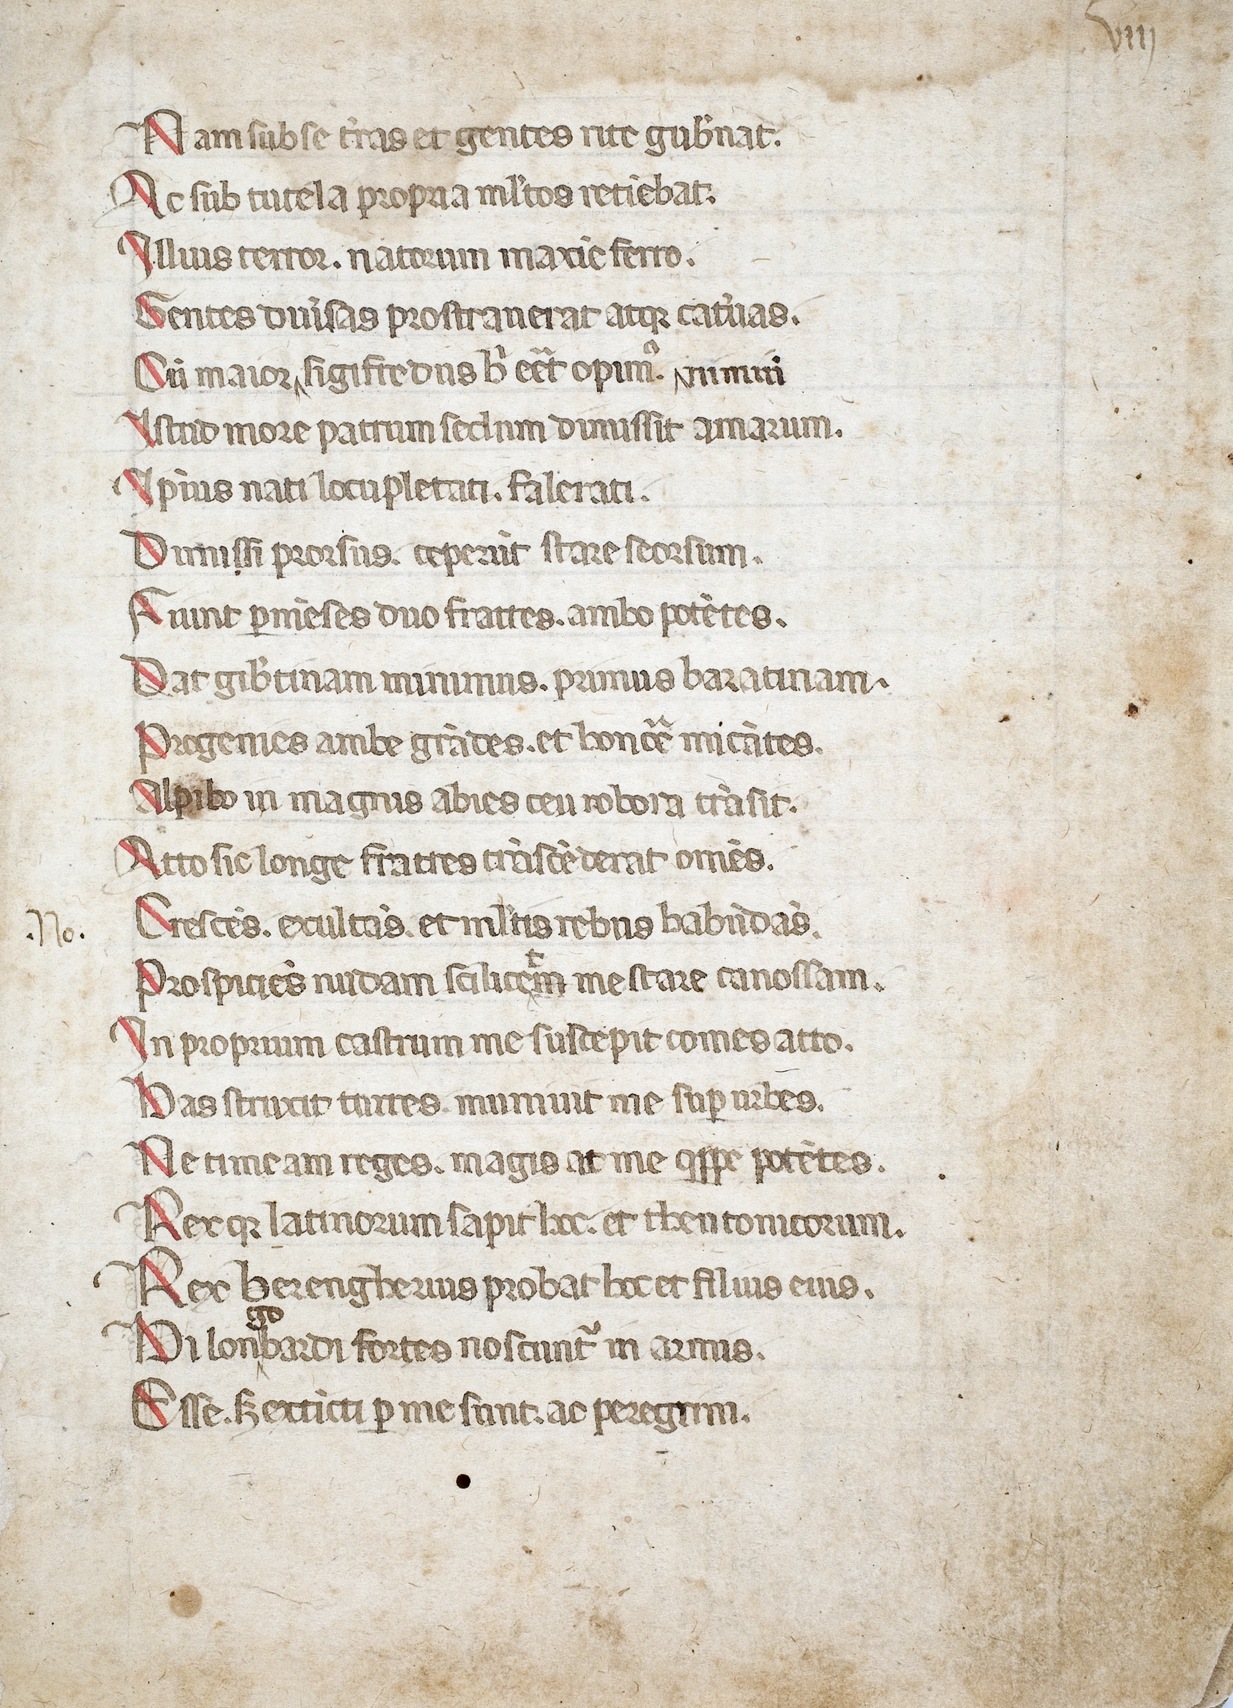 viij
Nam sub se t̄ras et gentes rite gub̄nat.
Ac sub tutela propria ml̄tos retiēbat.
Illius terror. natorum maxīe ferro.
Gentes diūsas prostrauerat atqꝫ cat̄uas.
Cū maior sigifredus b̄ eēt opimꝰ. nimiū
Istud more patrum seclum dimissit amarum.
Ipīus nati locupletati. falerati.
Dimissi prorsus. ceperūt stare seorsum.
Fiunt ꝑmēses duo frattes. ambo potētes.
Dat gib̄tinam minimus. primus baratinam.
Progenies ambe grādes. et honōre micātes.
Alpibꝰ in magnis abies ceu robora trāsit.
Atto sic longe frattes trāscēderat omēs.
.No.
Crescēs. excultās. et ml̄tis rebus habūdās.
Prospiciēs nudam scilicet me stare canossam.
In proprium castrum me suscepit comes atto.
Has struxit turres. muniuit me suꝑ urbes.
Ne timeam reges. magis at me qꝑpe potētes.
Rex qꝫ latinorum sapit hoc. et theutonicorum.
Rex berengherius probat hoc et filius eius.
Hi longobardi fortes noscunt᷑ in armis.
Esse. sꝫ extīcti ꝑ me sunt. ac peregrini.